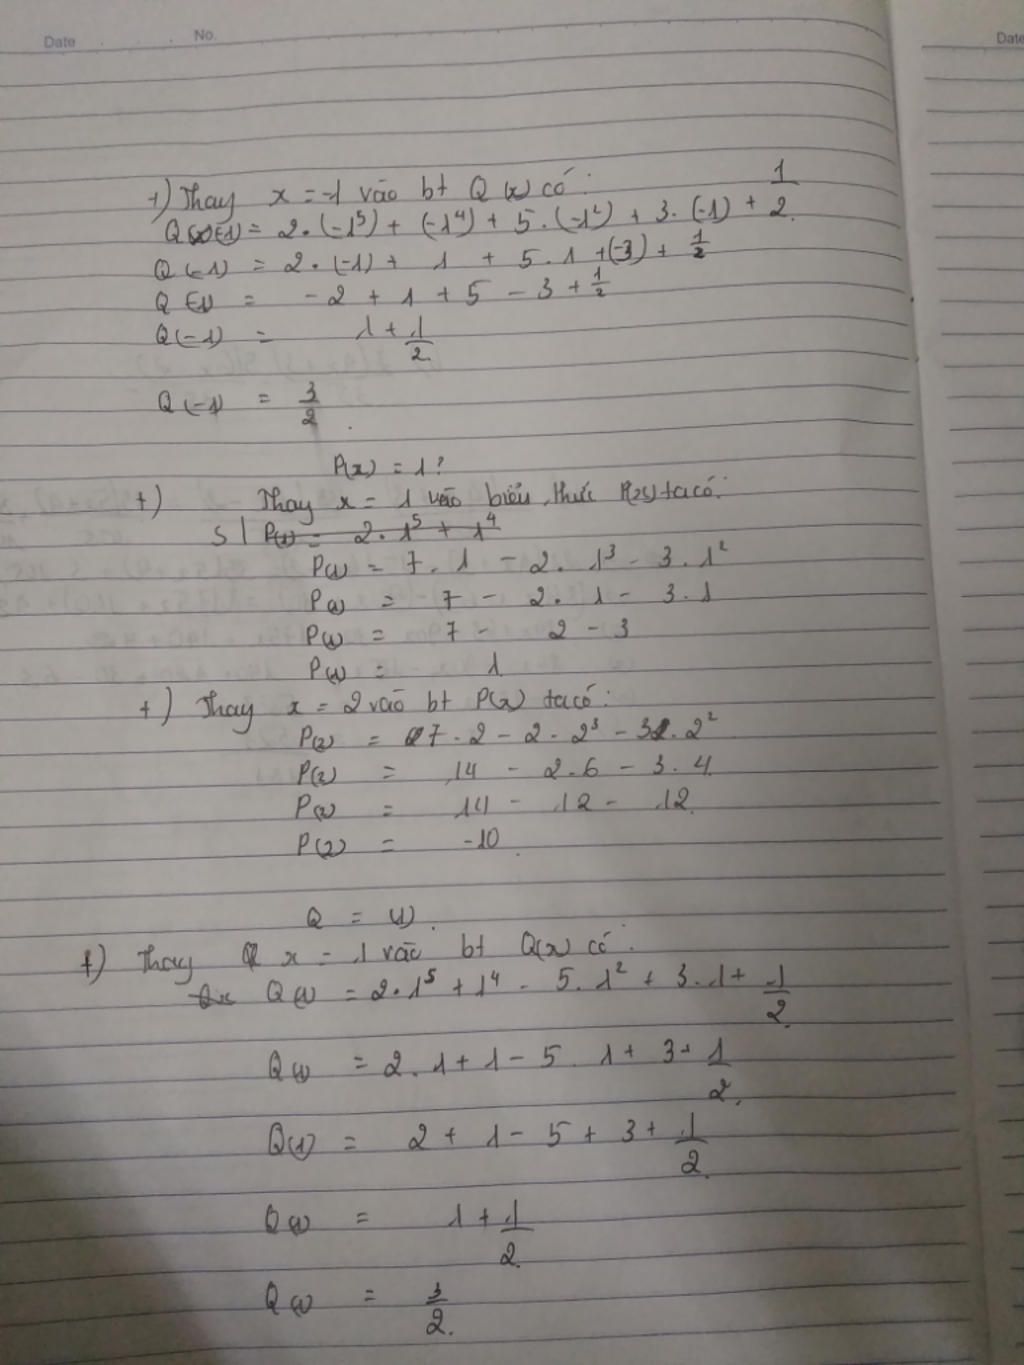 Date No.
Date
+) Thay x = -1 vào bt Q(x) có:
Q(-1) = 2.(-1⁵) + (-1⁴) + 5.(-1²) + 3.(-1) + 1/2.
Q(-1) = 2.(-1) + 1 + 5.1 + (-3) + 1/2
Q(-1) = -2 + 1 + 5 - 3 + 1/2
Q(-1) = 1 + 1/2.
Q(-1) = 3/2.
P(x) = 1?
+) Thay x = 1 vào biểu thức P(x) ta có:
S | P(1) = 2.1⁵ + 1⁴
P(1) = 7.1 - 2.1³ - 3.1²
P(1) = 7 - 2.1 - 3.1
P(1) = 7 - 2 - 3
P(1) = 1
+) Thay x = 2 vào bt P(x) ta có:
P(2) = 7.2 - 2.2³ - 3.2²
P(2) = 14 - 2.6 - 3.4
P(2) = 14 - 12 - 12.
P(2) = -10.
Q = (1).
+) Thay x = 1 vào bt Q(x) có:
Q(1) = 2.1⁵ + 1⁴ - 5.1² + 3.1 + 1/2.
Q(1) = 2.1 + 1 - 5.1 + 3 + 1/2.
Q(1) = 2 + 1 - 5 + 3 + 1/2.
Q(1) = 1 + 1/2.
Q(1) = 3/2.